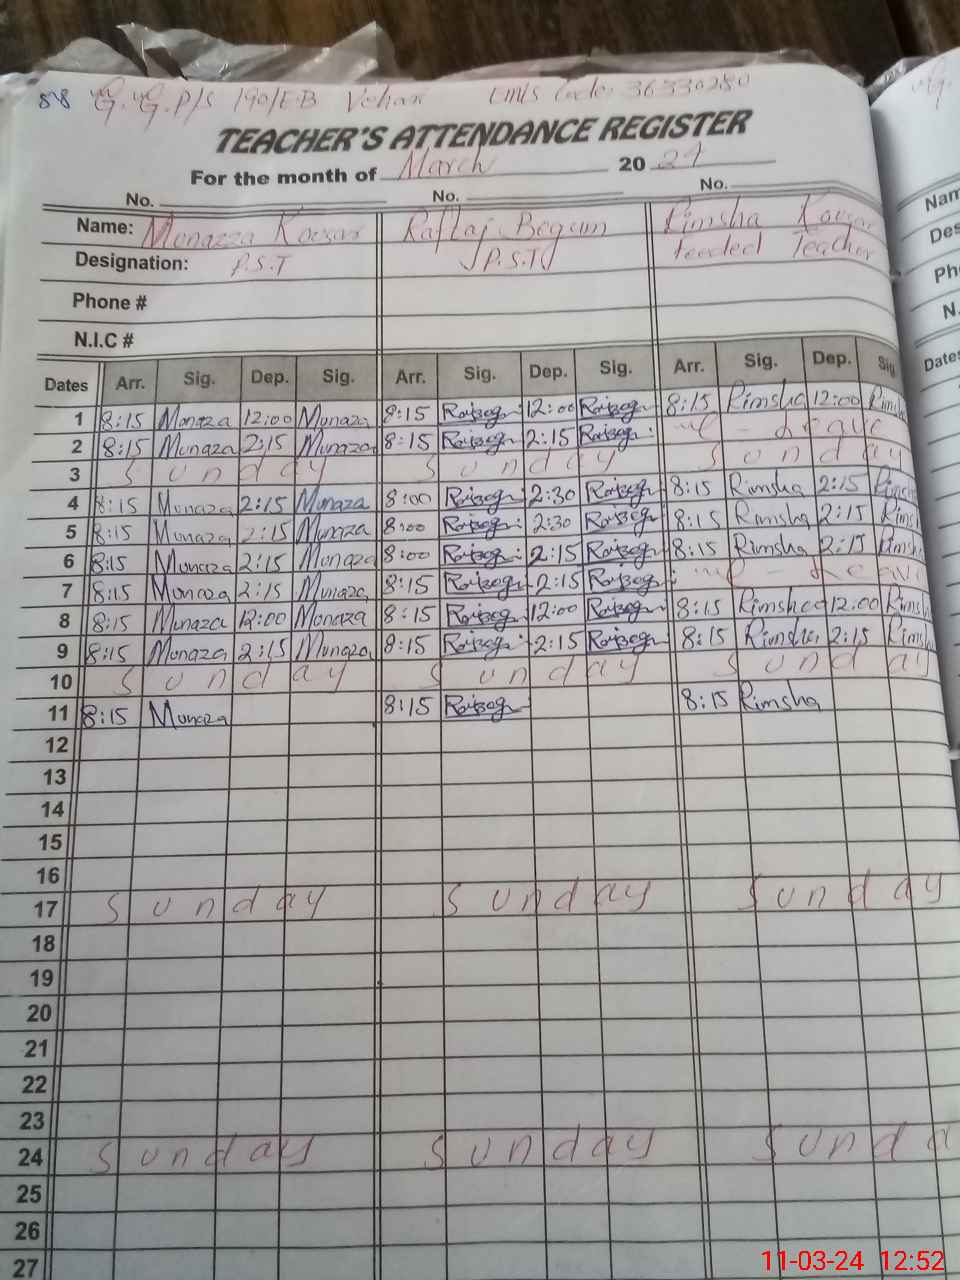 58 G.G.P/S 190/E-B Vehari Emis Code: 36330280
TEACHER'S ATTENDANCE REGISTER
For the month of March 2024
No. No. No.
Name: Monazza Kousar Begum Rimsha Kousar
Designation: P.S.T P.S.T Teacher
Phone #
N.I.C #
Dates Arr. Sig. Dep. Sig. Arr. Sig. Dep. Sig. Arr. Sig. Dep. Sig
1 8:15 Monaza 12:00 Monaza 8:15 12:00 8:15 Rimsha 12:00 Rimsha
2 8:15 Munaza 2:15 Munaza 8:15 2:15 Leave
3 Sunday Sunday Sunday
4 8:15 Monaza 2:15 Monaza 8:00 2:30 8:15 Rimsha 2:15 Rimsha
5 8:15 Monaza 2:15 Munaza 8:00 2:30 8:15 Rimsha 2:15 Rims
6 8:15 Monaza 2:15 Monaza 8:00 2:15 8:15 Rimsha 2:15 Rimsh
7 8:15 Monaza 2:15 Munaza 8:15 2:15 Leave
8 8:15 Monaza 12:00 Monaza 8:15 12:00 8:15 Rimsha 12:00 Rims
9 8:15 Monaza 2:15 Monaza 8:15 2:15 8:15 Rimsha 2:15 Rims
10 Sunday Sunday Sunday
11 8:15 Munaza 8:15 8:15 Rimsha
12
13
14
15
16
17 Sunday Sunday Sunday
18
19
20
21
22
23
24 Sunday Sunday Sunda
25
26
27
Nam
Des
Ph
N.
Dates
11-03-24 12:52